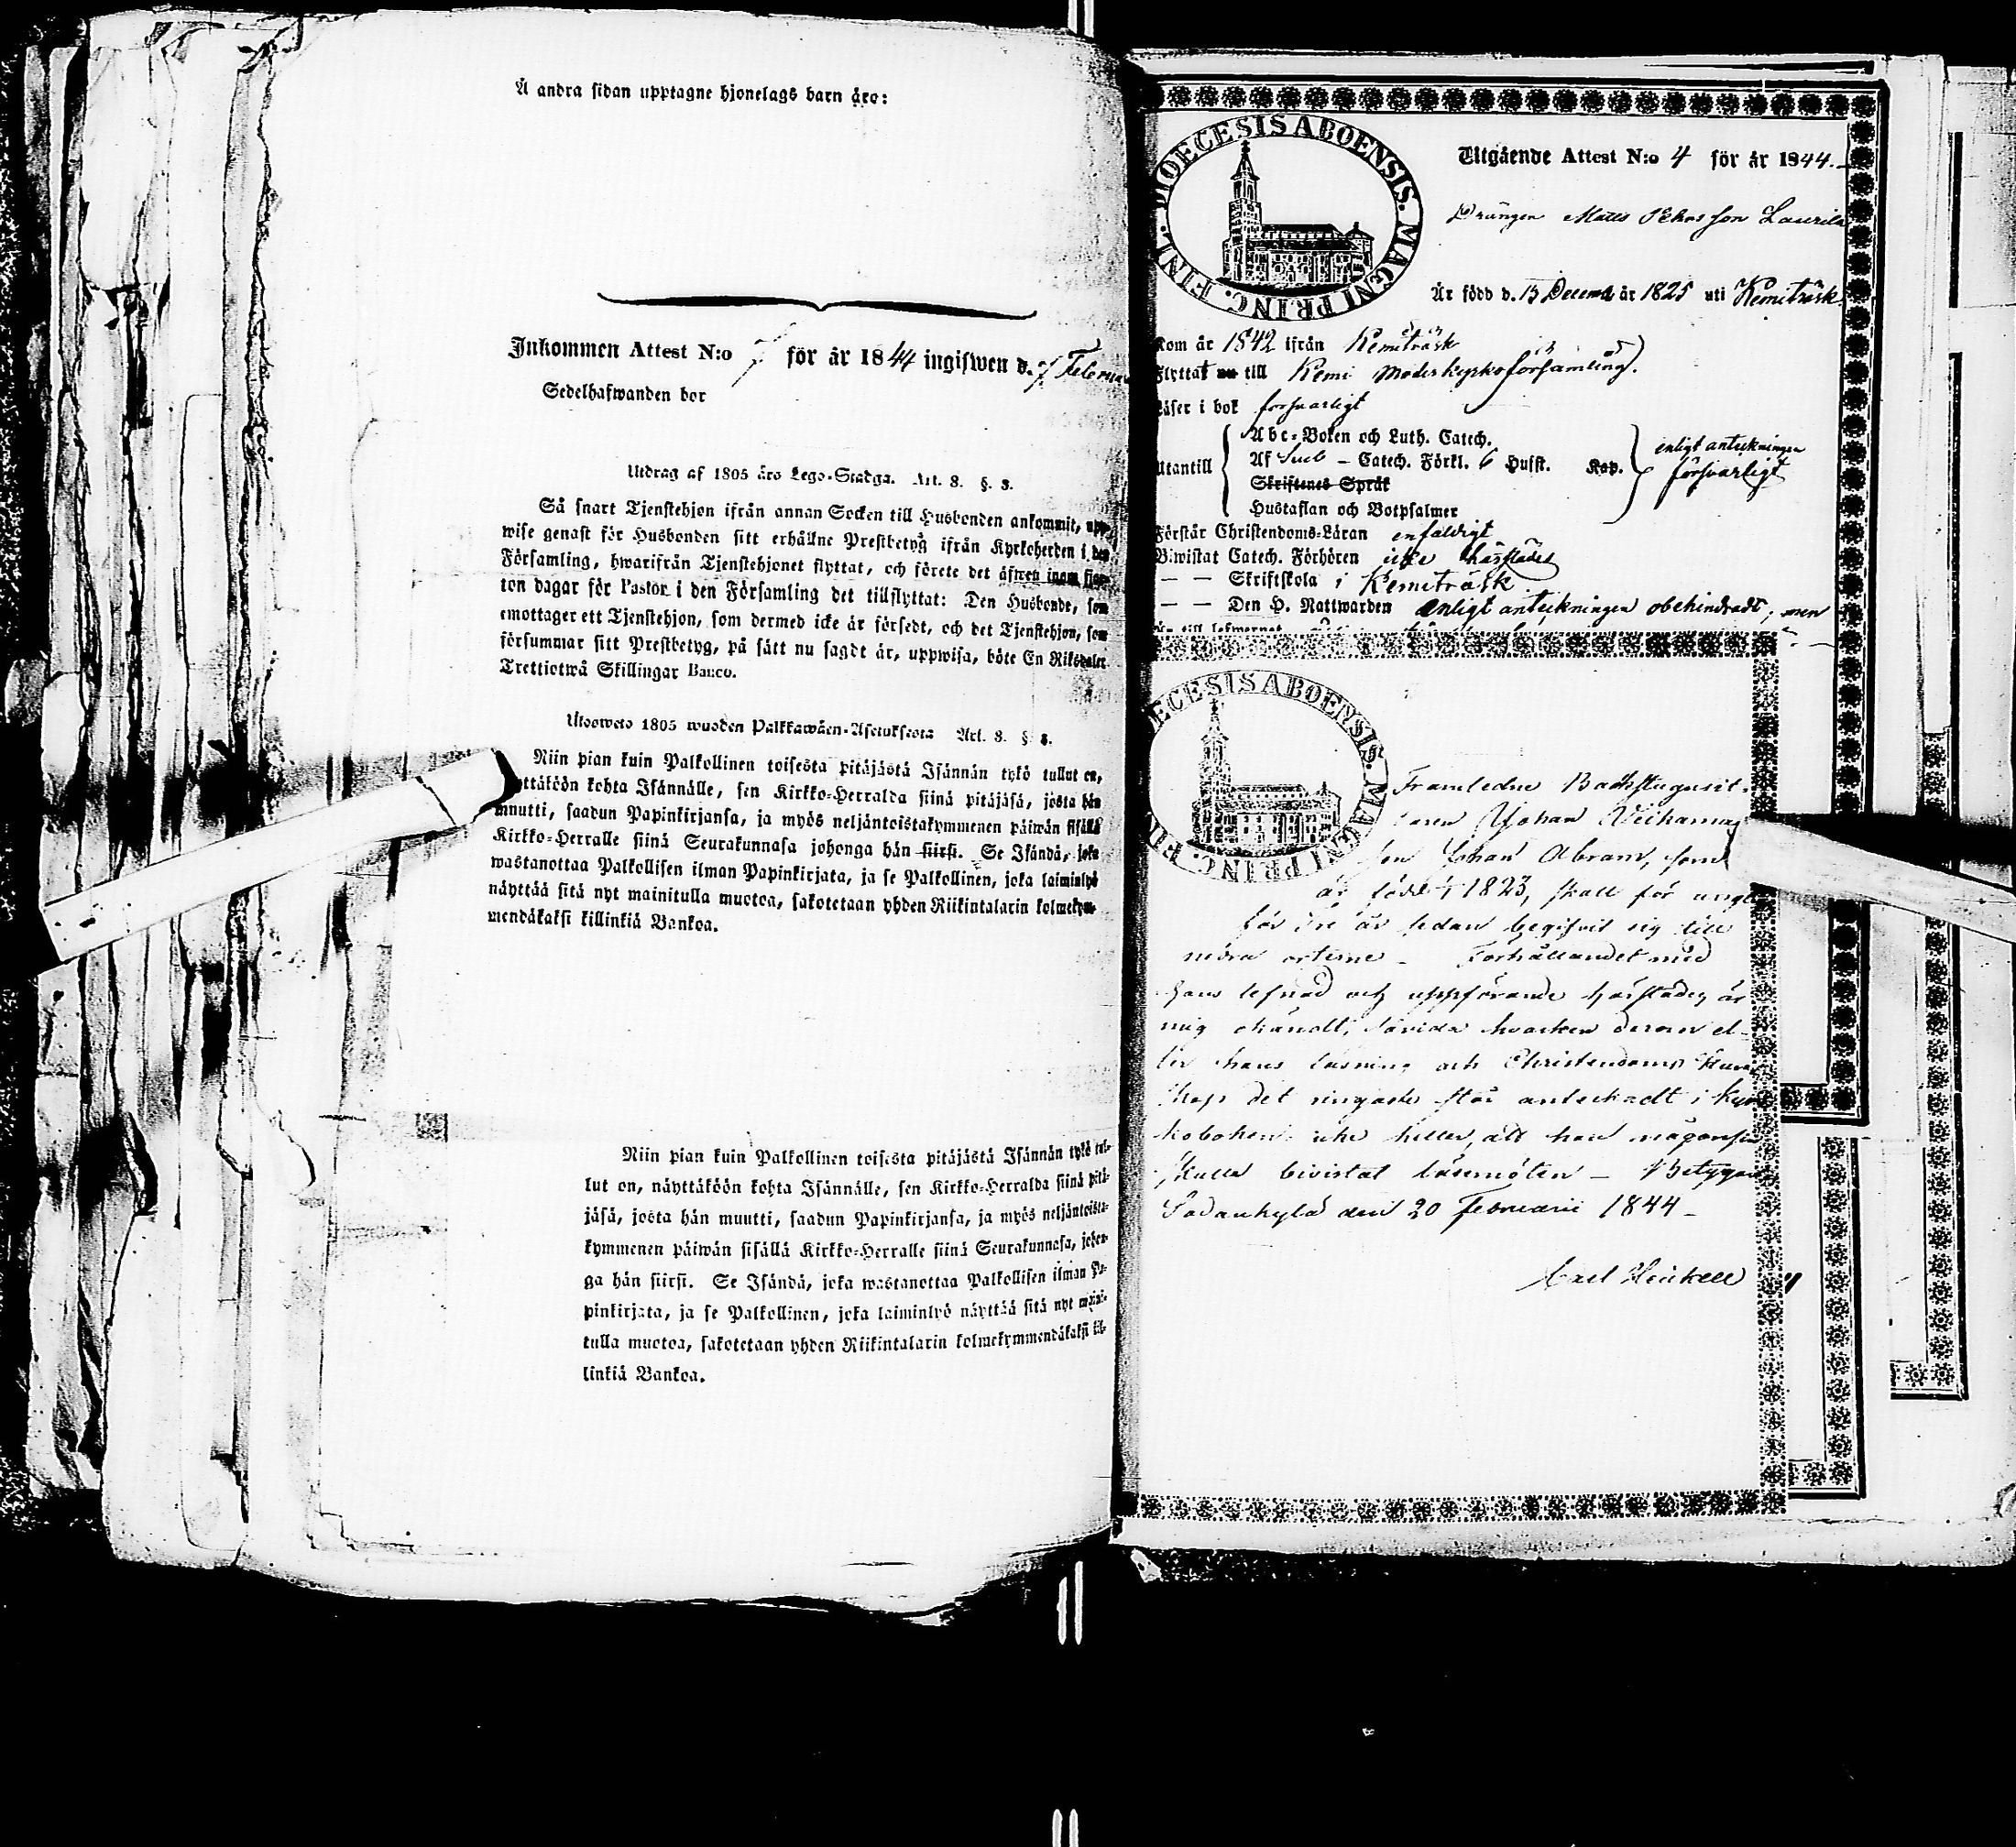 Å andra sidan upptagne hjonelags barn äro:
Inkommen Attest N:o 7 för år 1844 ingifwen d. 7 Februa
Sedelhafwanden bor
Utdrag af 1805 års Lego-Stadga. Art. 8. §. 3.
Så snart Tjenstehjon ifrån annan Socken till Husbonden ankommit, upp-
wise genast för Husbonden sitt erhållne Prestbetyg ifrån Kyrkoherden i den
Församling, hwarifrån Tjenstehjonet flyttat, och förete det äfwen inom fjor-
ton dagar för Pastor i den Församling det tillflyttat: Den Husbonde, som
emottager ett Tjenstehjon, som dermed icke är försedt, och det Tjenstehjon, som
försummar sitt Prestbetyg, på sätt nu sagdt är, uppwisa, böte En Riksdaler
Trettiotwå Skillingar Banco.
Ulosweto 1805 wuoden Palkkawäen-Asetuksesta Art. 8. § 3.
Niin pian kuin Palkollinen toisesta pitäjästä Isännän tykö tullut on,
ttäköön kohta Isännälle, sen Kirkko-Herralda siinä pitäjäsä, josta hän
muutti, saadun Papinkirjansa, ja myös neljäntoistakymmenen päiwän sisällä
Kirkko-Herralle siinä Seurakunnasa johonga hän siirsi. Se Isändä, joka
wastanottaa Palkollisen ilman Papinkirjata, ja se Palkollinen, joka laiminlyö
näyttää sitä nyt mainitulla muotoa, sakotetaan yhden Riikintalarin kolmekym-
mendäkaksi killinkiä Bankoa.
Niin pian kuin Palkollinen toisesta pitäjästä Isännän tykö tul-
lut on, näyttäköön kohta Isännälle, sen Kirkko-Herralda siinä pitä-
jäsä, josta hän muutti, saadun Papinkirjansa, ja myös neljäntoista-
kymmenen päiwän sisällä Kirkko-Herralle siinä Seurakunnasa, johon-
ga hän siirsi. Se Isändä, joka wastanottaa Palkollisen ilman Pa-
pinkirjata, ja se Palkollinen, joka laiminlyö näyttää sitä nyt maini-
tulla muotoa, sakotetaan yhden Riikintalarin kolmekymmendäkaksi kil-
linkiä Bankoa.
DIOECESIS ABOENSIS. MAGNI PRINC. FINL.
Utgående Attest N:o 4 för år 1844.
Drängen Matts Pehrsson Laurila
Är född d. 15 Decemb år 1825 uti Kemiträsk
Kom år 1842 ifrån Kemiträsk
Flyttat nu till Kemi Moderkyrkoförsamling.
Läser i bok försvarligt
Utantill
Abc-Boken och Luth. Catech.
Af Sveb - Catech. Förkl. 6 Husst. Kap.
Skriftenes Språk
Hustaflan och Botpsalmer
enligt anteckningen
försvarligt
Förstår Christendoms-Läran enfaldigt
Biwistat Catech. Förhören icke härstädes
— — Skriftskola i Kemiträsk
— — Den H. Nattwarden enligt anteckningen obehindradt, men
ECESIS ABOENSIS. MAGNI PRINC. FIN
Framledne Backstugusit-
taren Johan
son Johan Abram, som
är född 1823, skall för unge
för tre år sedan begifvit sig till
nedra orterne - Förhållandet med
hans lefnad och uppförande härstädes är
mig okändt, hvarken derom el-
ler hans läsning och Christendoms Kun
skap det ringaste står anteckadt i Kyr
koboken icke heller, att han någonsin
skulle bivistat läsemöten - Betygar
Sodankylä den 20 Februarii 1844 -
Carl Heickell